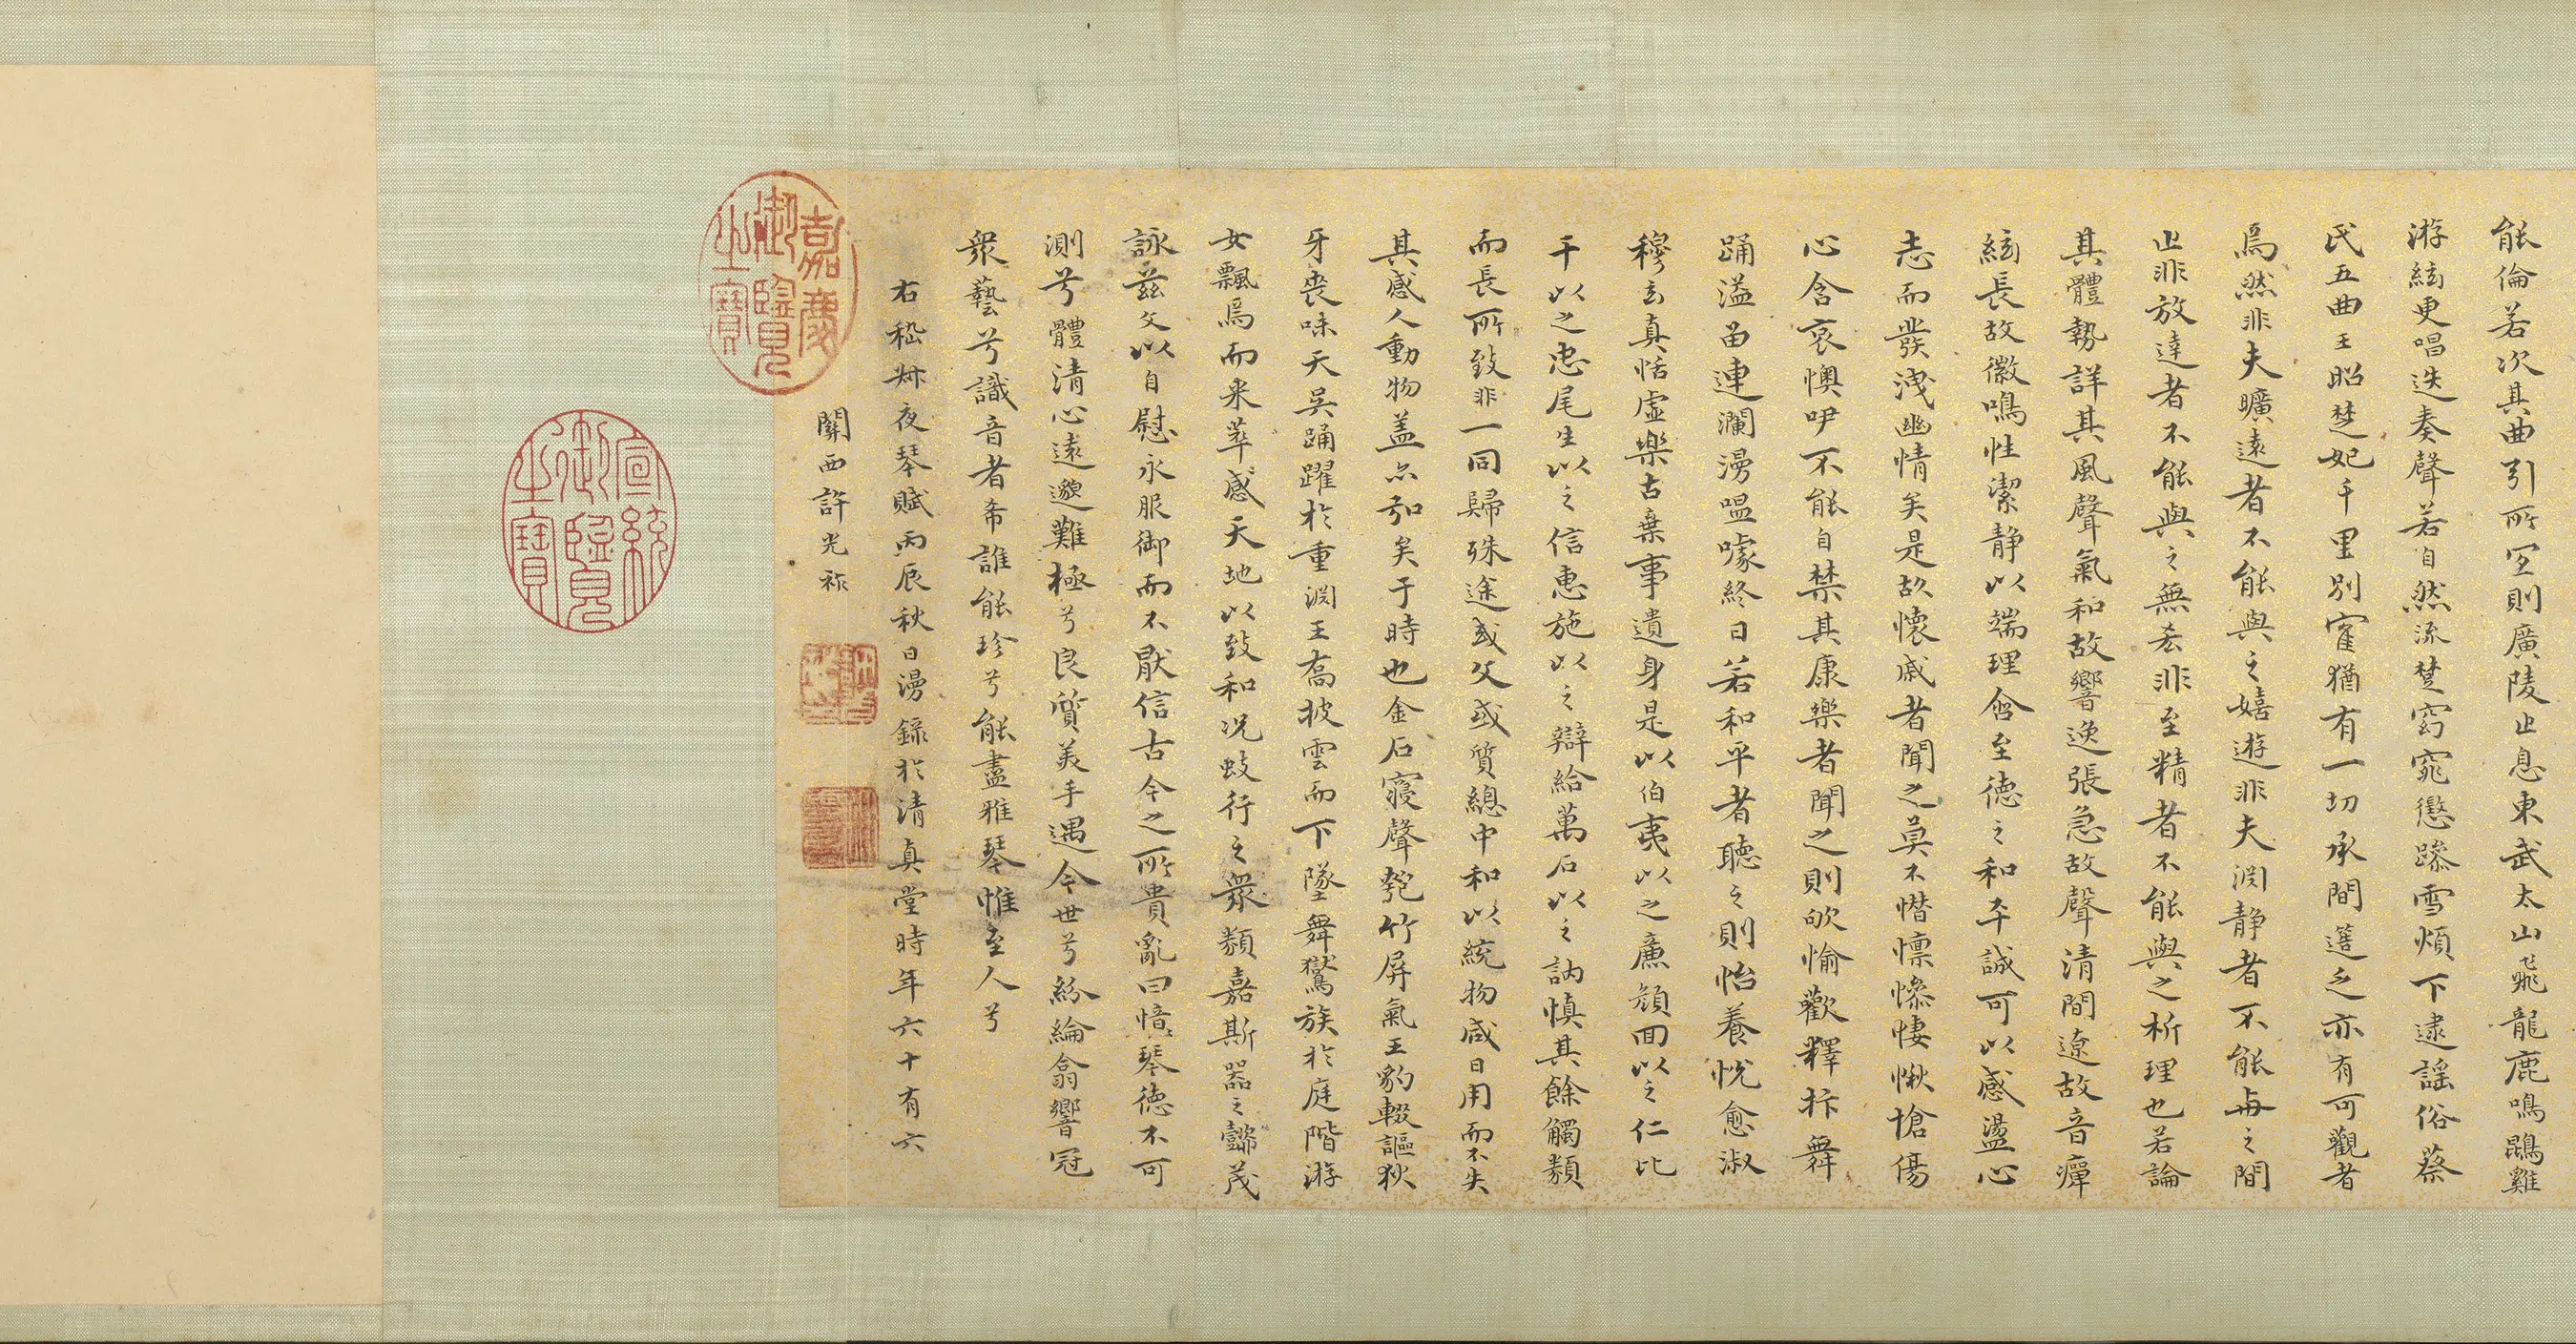 能倫若次其曲引所宜則廣陵止息東武太山飛龍鹿鳴鵾雞
游絃更唱迭奏聲若自然流楚窈窕懲躁雪煩下逮謠俗蔡
氏五曲王昭楚妃千里別寉猶有一切承間簉乏亦有可觀者
焉然非夫曠遠者不能與之嬉遊非夫淵靜者不能與之閒
止非放達者不能與之無吝非至精者不能與之析理也若論
其體勢詳其風聲氣和故響逸張急故聲清閒遼故音痺
絃長故徽鳴性潔靜以端理含至德之和平誠可以感盪心
志而發洩幽情矣是故懷戚者聞之莫不憯懍慘悽愀愴傷
心含哀懊咿不能自禁其康樂者聞之則欨愉歡釋抃舞
踊溢留連瀾漫嗢噱終日若和平者聽之則怡養悅愈淑
穆玄真恬虛樂古棄事遺身是以伯夷以之廉顏回以之仁比
干以之忠尾生以之信惠施以之辯給萬石以之訥慎其餘觸類
而長所致非一同歸殊途或文或質總中和以統物咸日用而不失
其感人動物盖亦弘矣于時也金石寢聲匏竹屏氣王豹輟謳狄
牙喪味天吳踊躍於重淵王喬披雲而下墜舞鸑鷟於庭階游
女飄焉而来萃感天地以致和况蚑行之衆類嘉斯器之懿茂
詠茲文以自慰永服御而不厭信古今之所貴亂曰愔愔琴德不可
測兮體清心遠邈難極兮良質美手遇今世兮紛綸翕響冠
衆藝兮識音者希誰能珍兮能盡雅琴惟至人兮
右嵇叔夜琴賦丙辰秋日漫錄於清真堂時年六十有六
關西許光祚
嘉慶御覽之寶
宣統御覽之寶